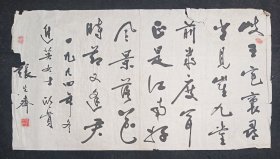 岐王宅裏尋
常見崔九堂
前幾度聞
正是江南好
風景落花
時節又逢君
一九九四年冬
英女士
張